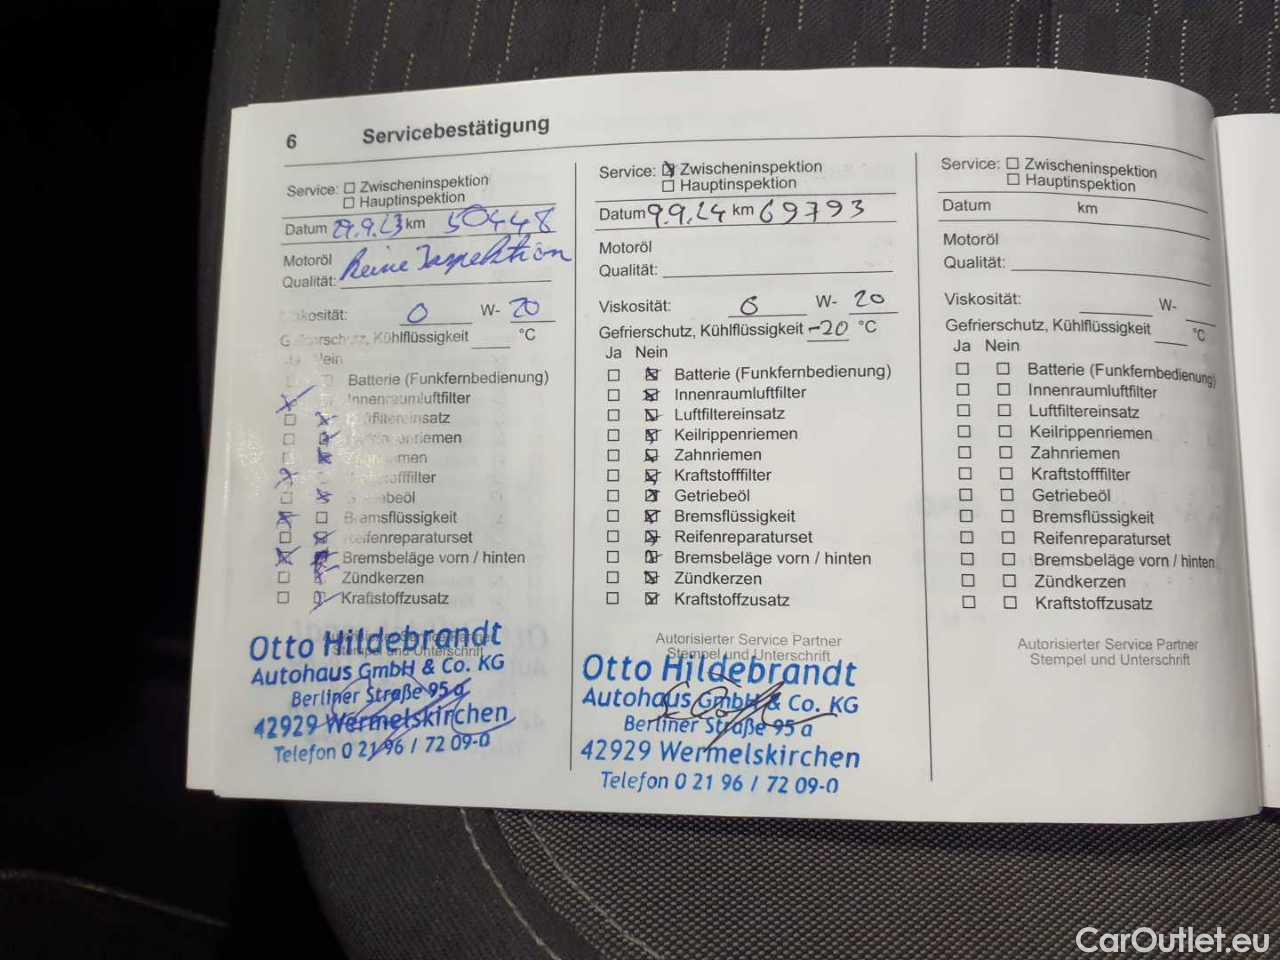 6 Servicebestätigung
Service: Zwischeninspektion
Hauptinspektion
Datum 29.9.23 km 50448
Motoröl
Qualität: Keine Inspektion
Viskosität: 0 W- 20
Kühlflüssigkeit °C
Nein
Batterie (Funkfernbedienung)
Innenraumluftfilter
Luftfiltereinsatz
Keilrippenriemen
Zahnriemen
Kraftstofffilter
Getriebeöl
Bremsflüssigkeit
Reifenreparaturset
Bremsbeläge vorn / hinten
Zündkerzen
Kraftstoffzusatz
Autorisierter Service Partner
Stempel und Unterschrift
Otto Hildebrandt
Autohaus GmbH & Co. KG
Berliner Straße 95 a
42929 Wermelskirchen
Telefon 0 21 96 / 72 09-0
Service: Zwischeninspektion
Hauptinspektion
Datum 9.9.24 km 69793
Motoröl
Qualität:
Viskosität: 0 W- 20
Gefrierschutz, Kühlflüssigkeit -20 °C
Ja Nein
Batterie (Funkfernbedienung)
Innenraumluftfilter
Luftfiltereinsatz
Keilrippenriemen
Zahnriemen
Kraftstofffilter
Getriebeöl
Bremsflüssigkeit
Reifenreparaturset
Bremsbeläge vorn / hinten
Zündkerzen
Kraftstoffzusatz
Autorisierter Service Partner
Stempel und Unterschrift
Otto Hildebrandt
Autohaus GmbH & Co. KG
Berliner Straße 95 a
42929 Wermelskirchen
Telefon 0 21 96 / 72 09-0
Service: Zwischeninspektion
Hauptinspektion
Datum km
Motoröl
Qualität:
Viskosität: W-
Gefrierschutz, Kühlflüssigkeit °C
Ja Nein
Batterie (Funkfernbedienung)
Innenraumluftfilter
Luftfiltereinsatz
Keilrippenriemen
Zahnriemen
Kraftstofffilter
Getriebeöl
Bremsflüssigkeit
Reifenreparaturset
Bremsbeläge vorn / hinten
Zündkerzen
Kraftstoffzusatz
Autorisierter Service Partner
Stempel und Unterschrift
CarOutlet.eu